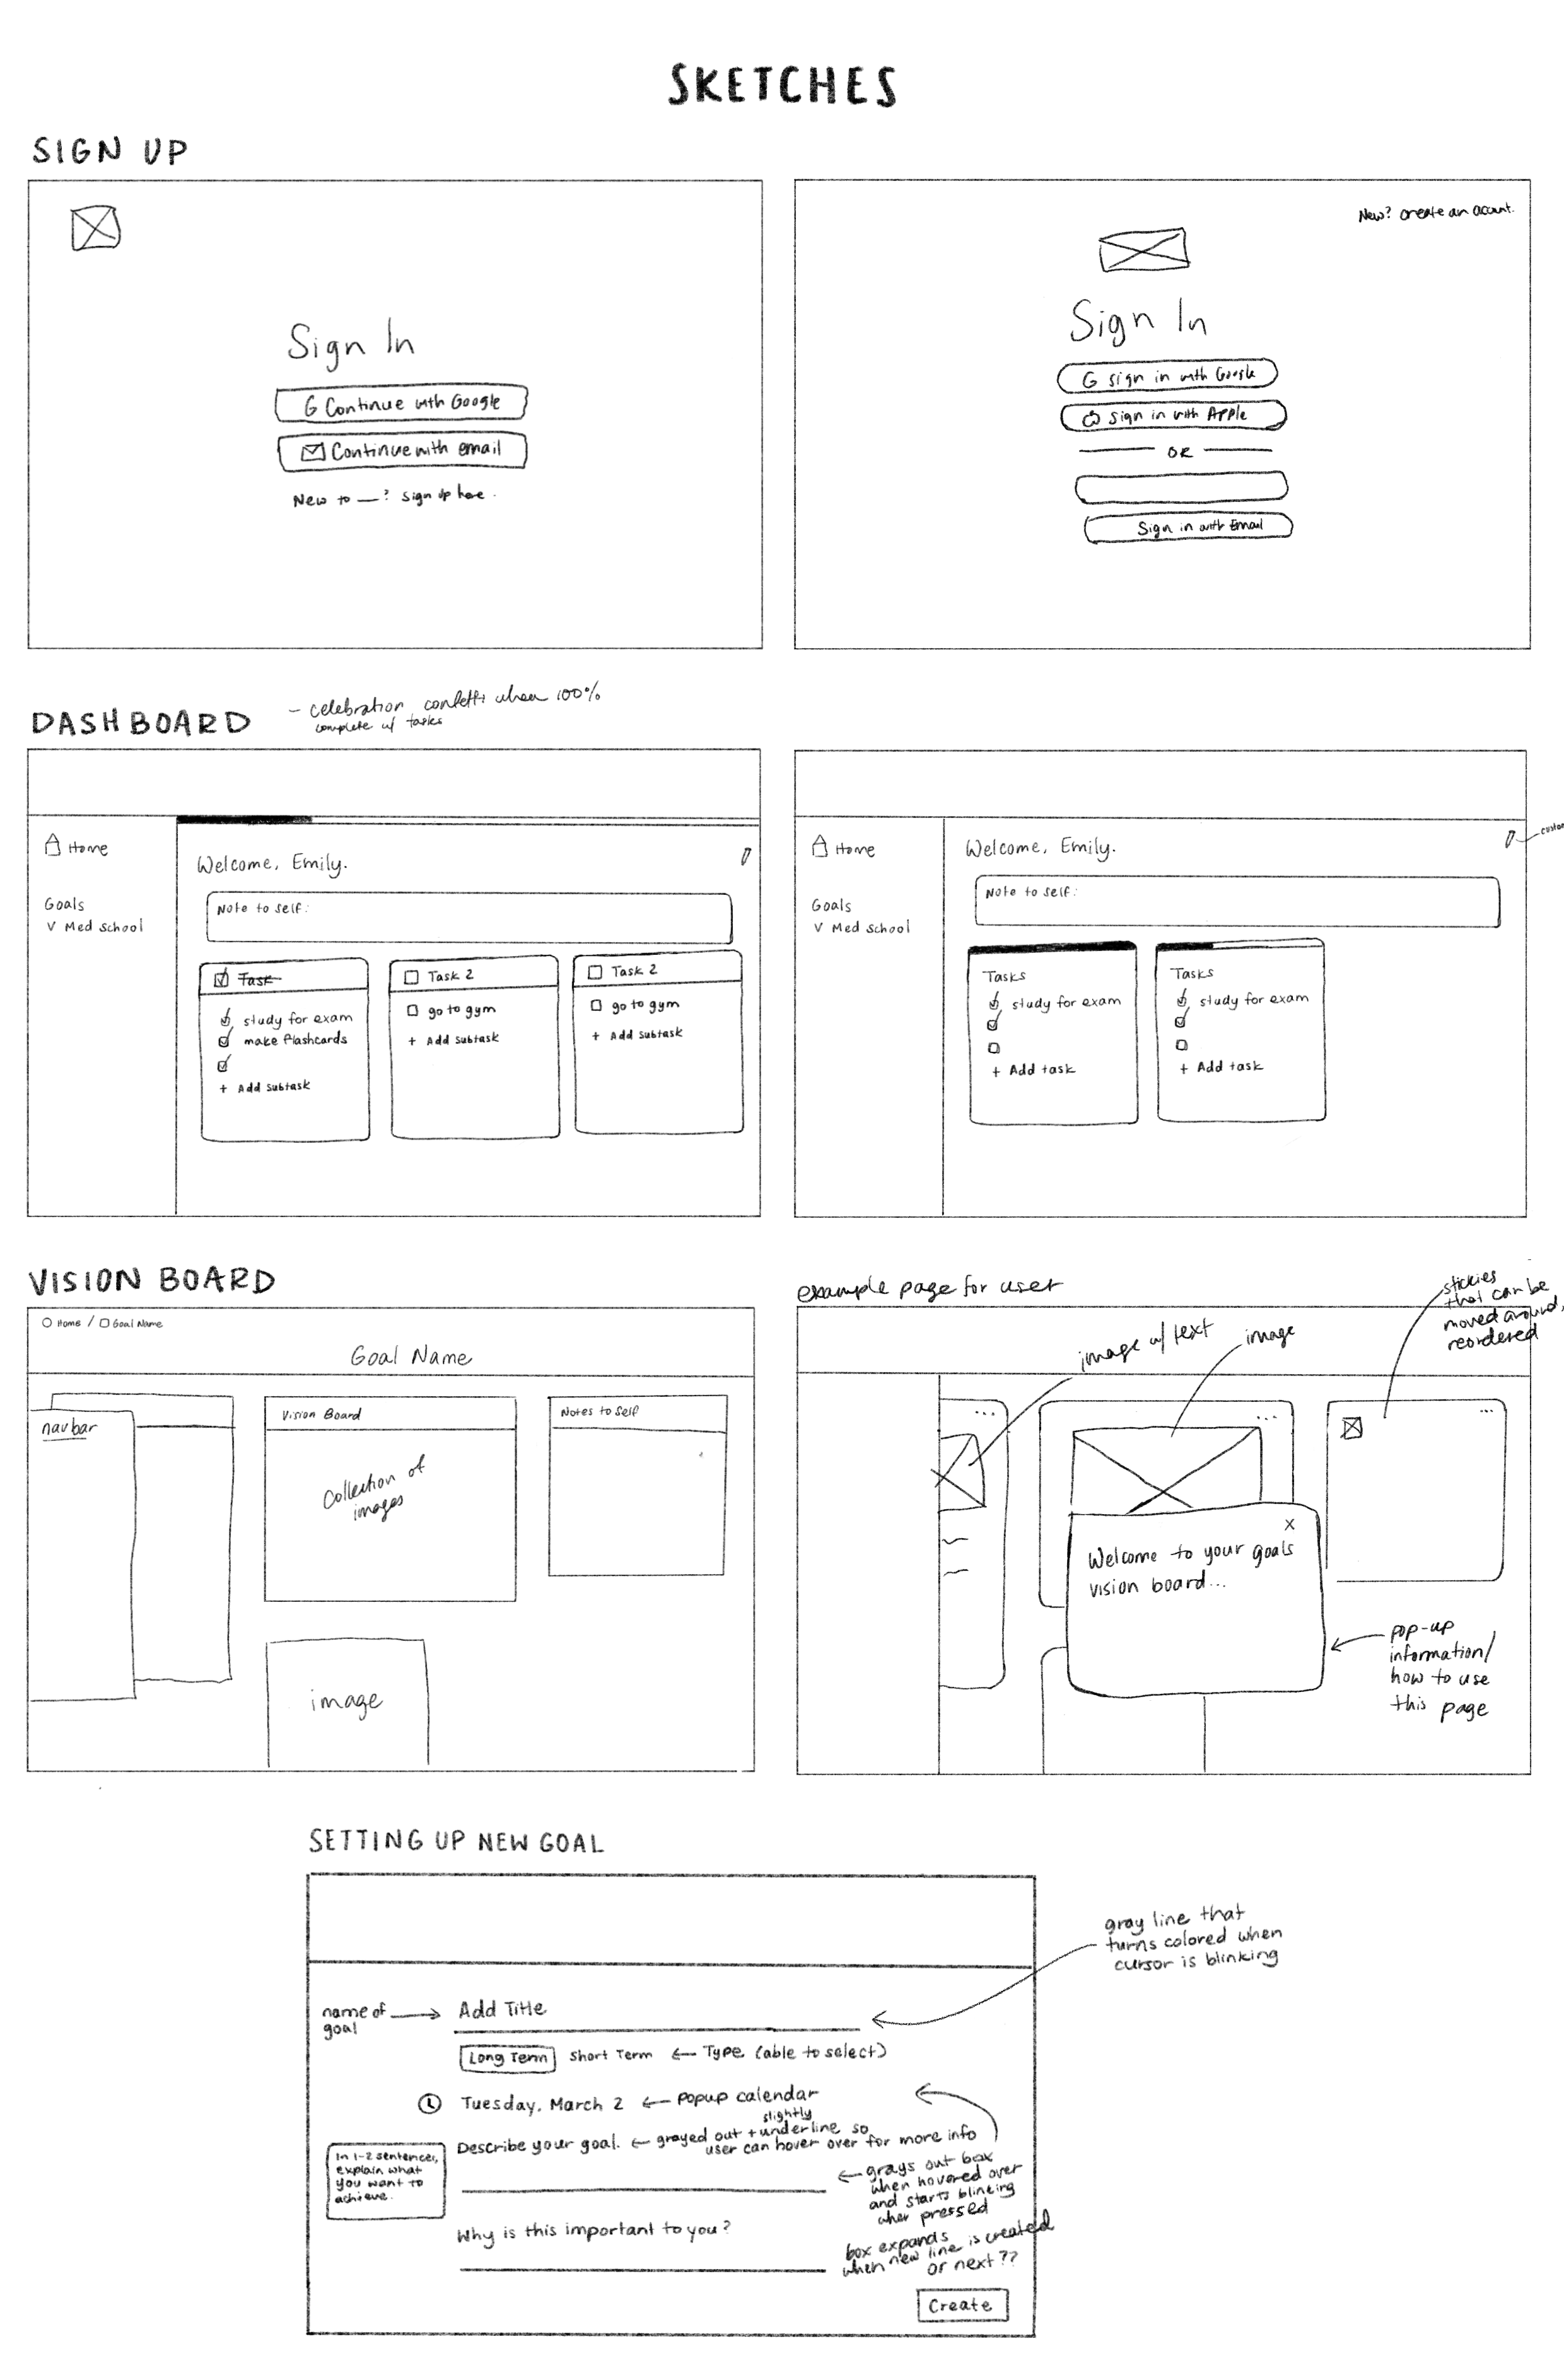 SKETCHES
SIGN UP
Sign In
G Continue with Google
Continue with email
New to __? Sign up here.
New? Create an acount.
Sign In
G sign in with Google
sign in with Apple
OR
Sign in with Email
DASHBOARD
- celebration confetti when 100%
complete w/ tasks
Home
Goals
V Med School
Welcome, Emily.
Note to self:
Task
study for exam
make flashcards
+ Add subtask
Task 2
go to gym
+ Add subtask
Task 2
go to gym
+ Add subtask
Home
Goals
V Med School
Welcome, Emily.
Note to self:
Tasks
study for exam
+ Add task
Tasks
study for exam
+ Add task
VISION BOARD
Home / Goal Name
Goal Name
navbar
Vision Board
Collection of
images
Notes to Self
image
example page for user
image w/ text
image
stickies
that can be
moved around,
reordered
...
...
...
X
Welcome to your goals
vision board...
pop-up
information/
how to use
this page
SETTING UP NEW GOAL
gray line that
turns colored when
cursor is blinking
name of
goal
Add Title
Long Term Short Term ← Type (able to select)
Tuesday, March 2 ← popup calendar
slightly
Describe your goal. ← grayed out + underline so
user can hover over for more info
In 1-2 sentences,
explain what
you want to
achieve.
← grays out box
when hovered over
and starts blinking
when pressed
Why is this important to you?
box expands
when new line is created
or next??
Create